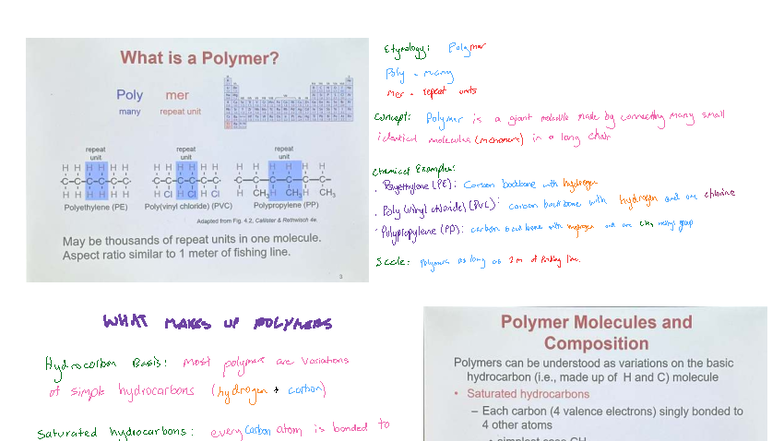 What is a Polymer?
Poly mer
many repeat unit
repeat unit
repeat unit
repeat unit
H H H H H H
C C C C C C
H H H H H H
H H H H H H
C C C C C C
H Cl H Cl H Cl
H H H H H H
C C C C C C
H CH3 H CH3 H CH3
Polyethylene (PE) Poly(vinyl chloride) (PVC) Polypropylene (PP)
Adapted from Fig. 4.2, Callister & Rethwisch 4e.
May be thousands of repeat units in one molecule.
Aspect ratio similar to 1 meter of fishing line.
3
Etymology: Polymer
Poly = many
Mer = repeat units
Concept: Polymer is a giant molecule made by connecting many small
identical molecules (monomers) in a long chain
Chemical Examples:
Polyethylene (PE): Carbon backbone with hydrogen
Poly (vinyl chloride) (PVC): carbon backbone with hydrogen and one chlorine
Polypropylene (PP): carbon backbone with hydrogen and one CH3 group
Scale: Polymers as long as of fishing line.
WHAT MAKES UP POLYMERS
Hydrocarbon Basis: most polymers are variations
of simple hydrocarbons (hydrogen + carbon)
Saturated hydrocarbons: every carbon atom is bonded to
Polymer Molecules and
Composition
Polymers can be understood as variations on the basic
hydrocarbon (i.e., made up of H and C) molecule
• Saturated hydrocarbons
– Each carbon (4 valence electrons) singly bonded to
4 other atoms